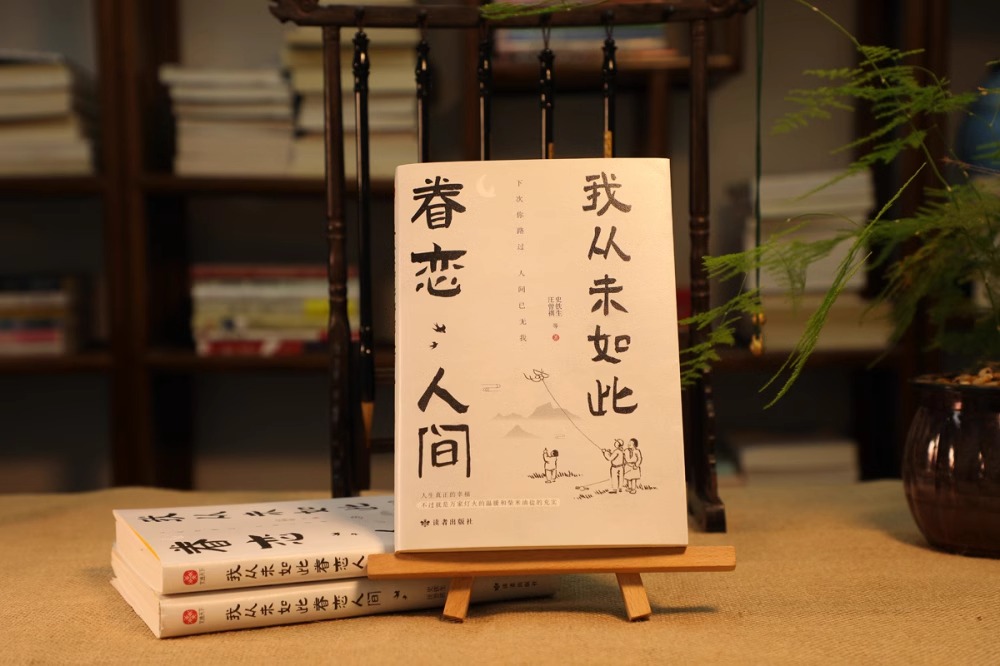 我从未如此
眷恋人间
下次你路过 人间已无我
史铁生
汪曾祺
等 著
人生真正的幸福
不过就是万家灯火的温暖和柴米油盐的充实
读者出版社
我从未如此
眷恋
我从未如此眷恋人
我从未如此眷恋人间